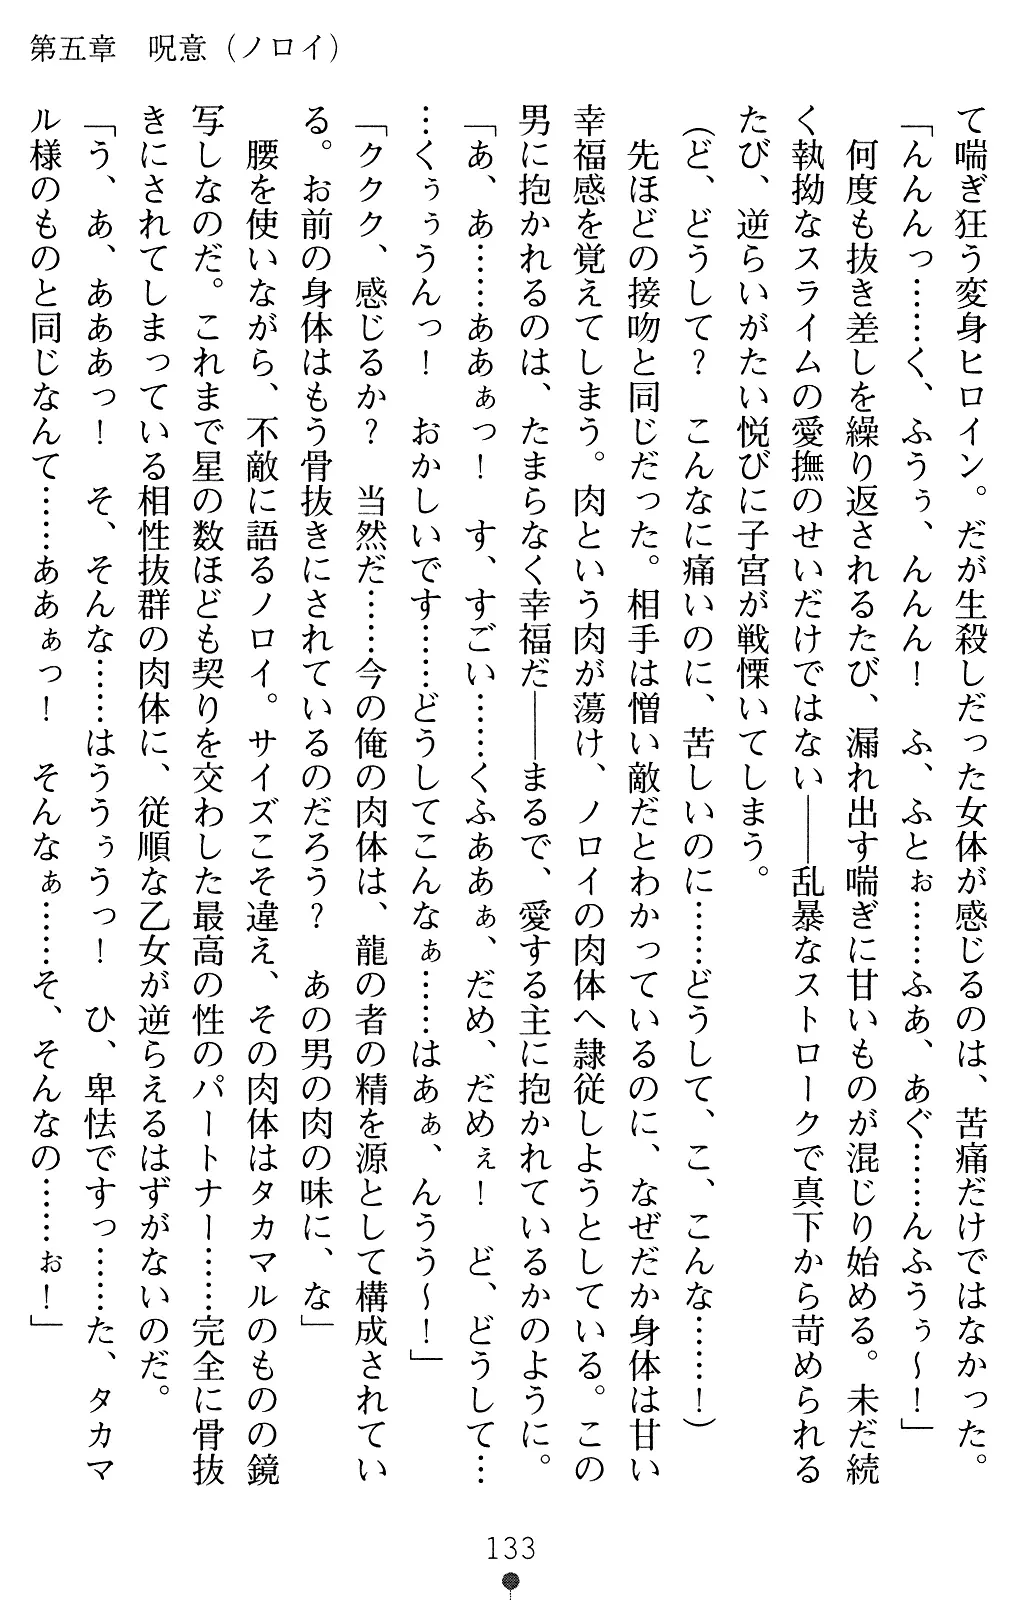 第五章　呪意（ノロイ）
て喘ぎ狂う変身ヒロイン。だが生殺しだった女体が感じるのは、苦痛だけではなかった。
「んんんっ……く、ふうぅ、んんん！　ふ、ふとぉ……ふあ、あぐ……んふうぅ～！」
何度も抜き差しを繰り返されるたび、漏れ出す喘ぎに甘いものが混じり始める。未だ続
く執拗なスライムの愛撫のせいだけではない――乱暴なストロークで真下から苛められる
たび、逆らいがたい悦びに子宮が戦慄いてしまう。
（ど、どうして？　こんなに痛いのに、苦しいのに……どうして、こ、こんな……！）
先ほどの接吻と同じだった。相手は憎い敵だとわかっているのに、なぜだか身体は甘い
幸福感を覚えてしまう。肉という肉が蕩け、ノロイの肉体へ隷従しようとしている。この
男に抱かれるのは、たまらなく幸福だ――まるで、愛する主に抱かれているかのように。
「あ、あ……ああぁっ！　す、すごい……くふああぁ、だめ、だめぇ！　ど、どうして…
…くぅぅうんっ！　おかしいです……どうしてこんなぁ……はあぁ、んうう～！」
「ククク、感じるか？　当然だ……今の俺の肉体は、龍の者の精を源として構成されてい
る。お前の身体はもう骨抜きにされているのだろう？　あの男の肉の味に、な」
腰を使いながら、不敵に語るノロイ。サイズこそ違え、その肉体はタカマルのものの鏡
写しなのだ。これまで星の数ほども契りを交わした最高の性のパートナー……完全に骨抜
きにされてしまっている相性抜群の肉体に、従順な乙女が逆らえるはずがないのだ。
「う、あ、あああっ！　そ、そんな……はううぅうっ！　ひ、卑怯ですっ……た、タカマ
ル様のものと同じなんて……ああぁっ！　そんなぁ……そ、そんなの……ぉ！」
133